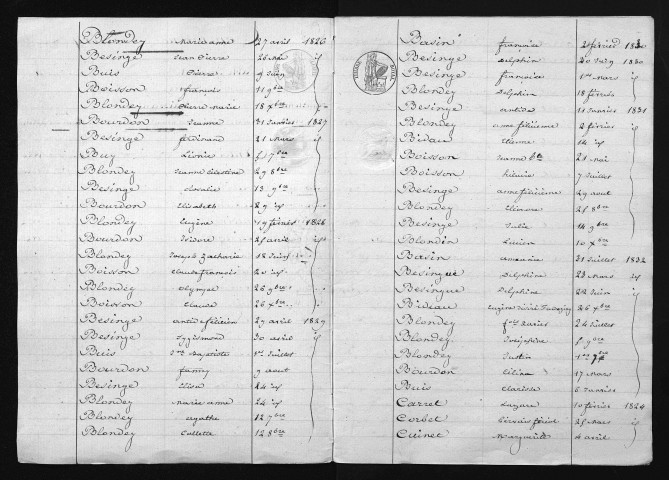 Blondey Marie anne 27 avril 1826
Besinge Jean Pierre 26 Mai id
Buis Pierre 9 Juin
Boisson françois 11 9bre
Blondey Pierre Marie 18 Xbre
Bourdon Jeanne 21 Janvier 1827
Besinge ferdinand 21 Mars
Buy Léonie 17 bre
Blondey Jeanne Celestine 29 8bre
Besinge 13 9bre
Bourdon Elisabeth 29 id
Blondey Eugène 19 février 1828
Bourdon Isidore 25 avril id
Blondey Joseph Zacharie 18 Juin
Boisson Claude francois 20 id
Blondey Olympe 26 9bre
Boisson Clause 26 Xbre
Besinge antide félicien 27 avril 1829
Besinge Sigismond 30 avril id
Buis Jn Baptiste 1er Juillet
Bourdon fanny 9 aout
Besinge Elison 24 id
Blondey Marie anne 24 id
Blondey agathe 12 7bre
Blondey Collette 12 8bre
Basin françoise 2 février 1830
Besinge Delphin 20 1830
Besinge françoise 1er Mars id
Blondey Delphin 18 février
Besinge antide 11 Janvier 1831
Blondey anne félicienne 2 février id
Bideau Etienne 14 id
Boisson Jeanne Bte 21 Mai
Boisson 7 Juillet
Besinge anne félicienne 29 aout
Blondey Eléonore 25 8bre
Besinge Julie 14 9bre
Blondin Lucien 10 Xbre
Basin 31 Juillet 1832
Besingue Delphine 23 Mars id
Besingue Delphine 22 Juin id
Bideau Eugène 26 Xbre
Blondey fois Xavier 24 Juillet
Blondey Joséphine 8 9bre
Blondey Justin 1er 7bre
Bourdon Célina 17 Mars
Buis Clarisse 6 Janvier
Carret Lazare 10 février 1824
Corbet 25 Mars id
Cuinet Marguerite 4 avril